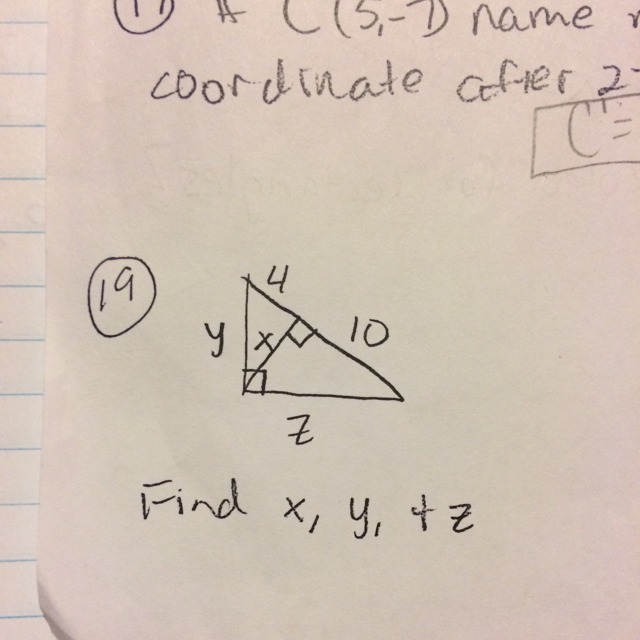 (17) A C(5,-7) name
coordinate after 2-
C'=
(19)
4
y x 10
z
Find x, y, + z